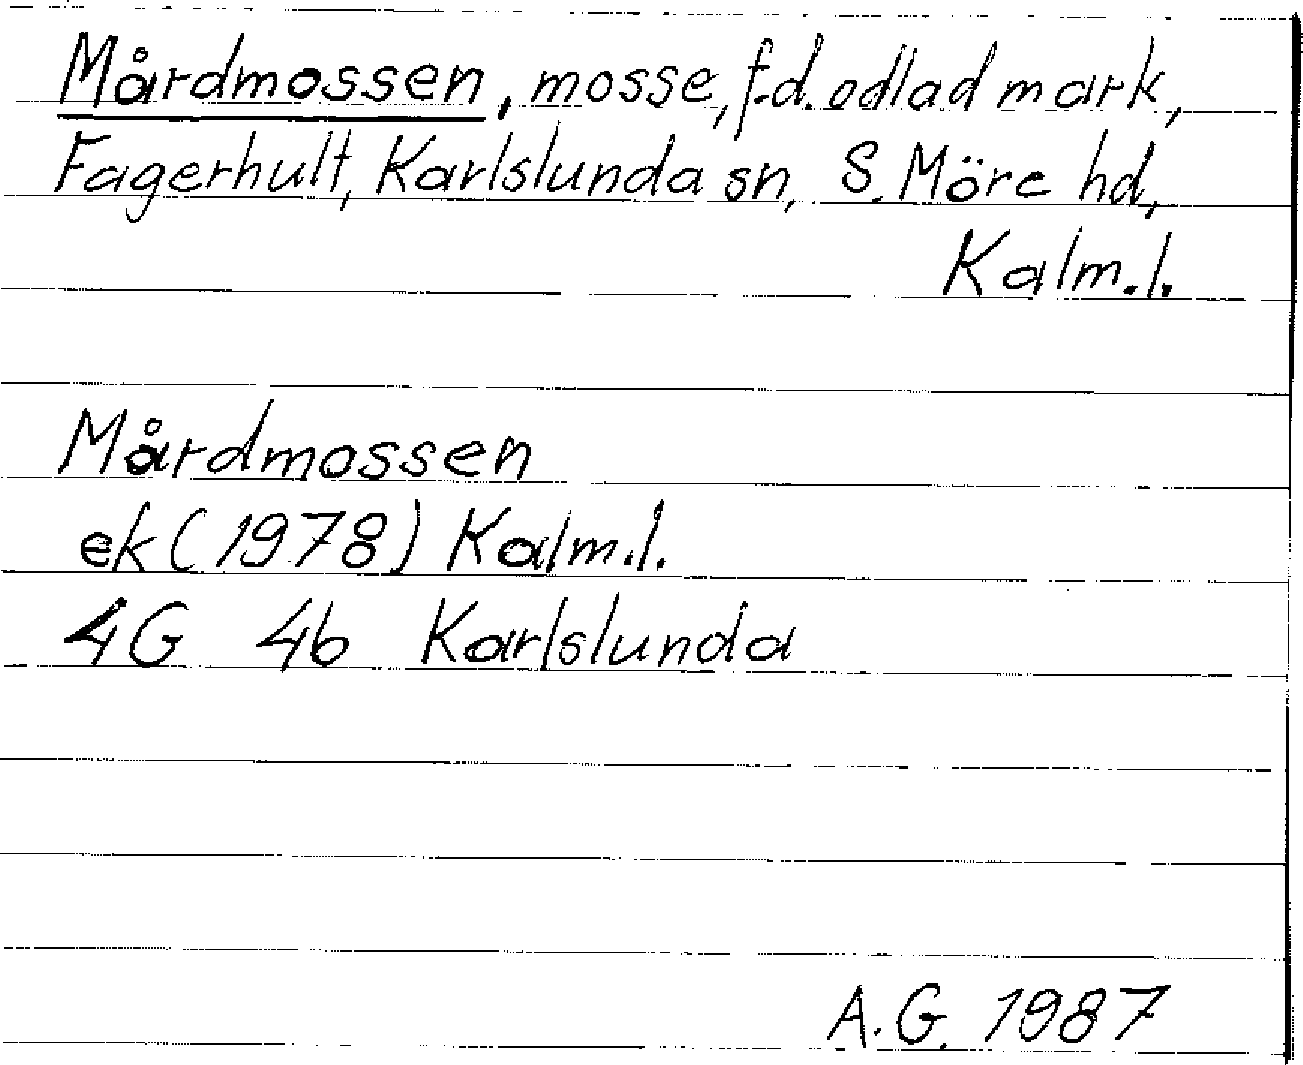 Mårdmossen, mosse, f.d. odlad mark,
Fagerhult, Karlslunda sn, S. Möre hd,
Kalm.l.
Mårdmossen
ek (1978) Kalm.l.
4G 4b Karlslunda
A.G. 1987